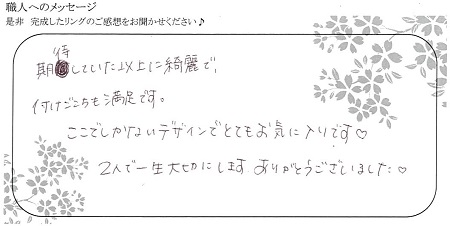 職人へのメッセージ
是非 完成したリングのご感想をお聞かせください♪
期待していた以上に綺麗で、
付けごこちも満足です。
ここでしかないデザインでとてもお気に入りです♡
2人で一生大切にします。ありがとうございました♡